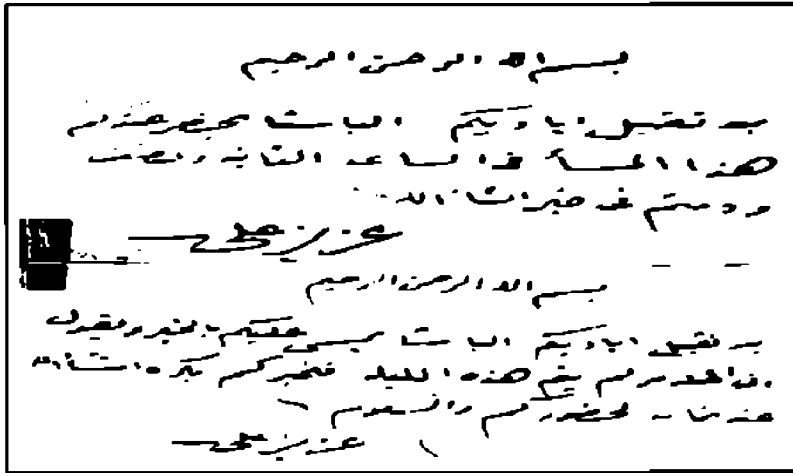 بسم الله الرحمن الرحيم
بعد تقبيل اياديكم الباشا يحضر عندكم
هذا المسأ في الساعه الثانيه والنصف
ودمتم في خير انشاالله
عزيز علي
بسم الله الرحمن الرحيم
بعد تقبيل اياديكم الباشا يمسي عليكم بالخير ويقول
لم يتم هذه الليله فنخبركم بكره انشأالله
عند لحضوركم والسلام
عزيز علي